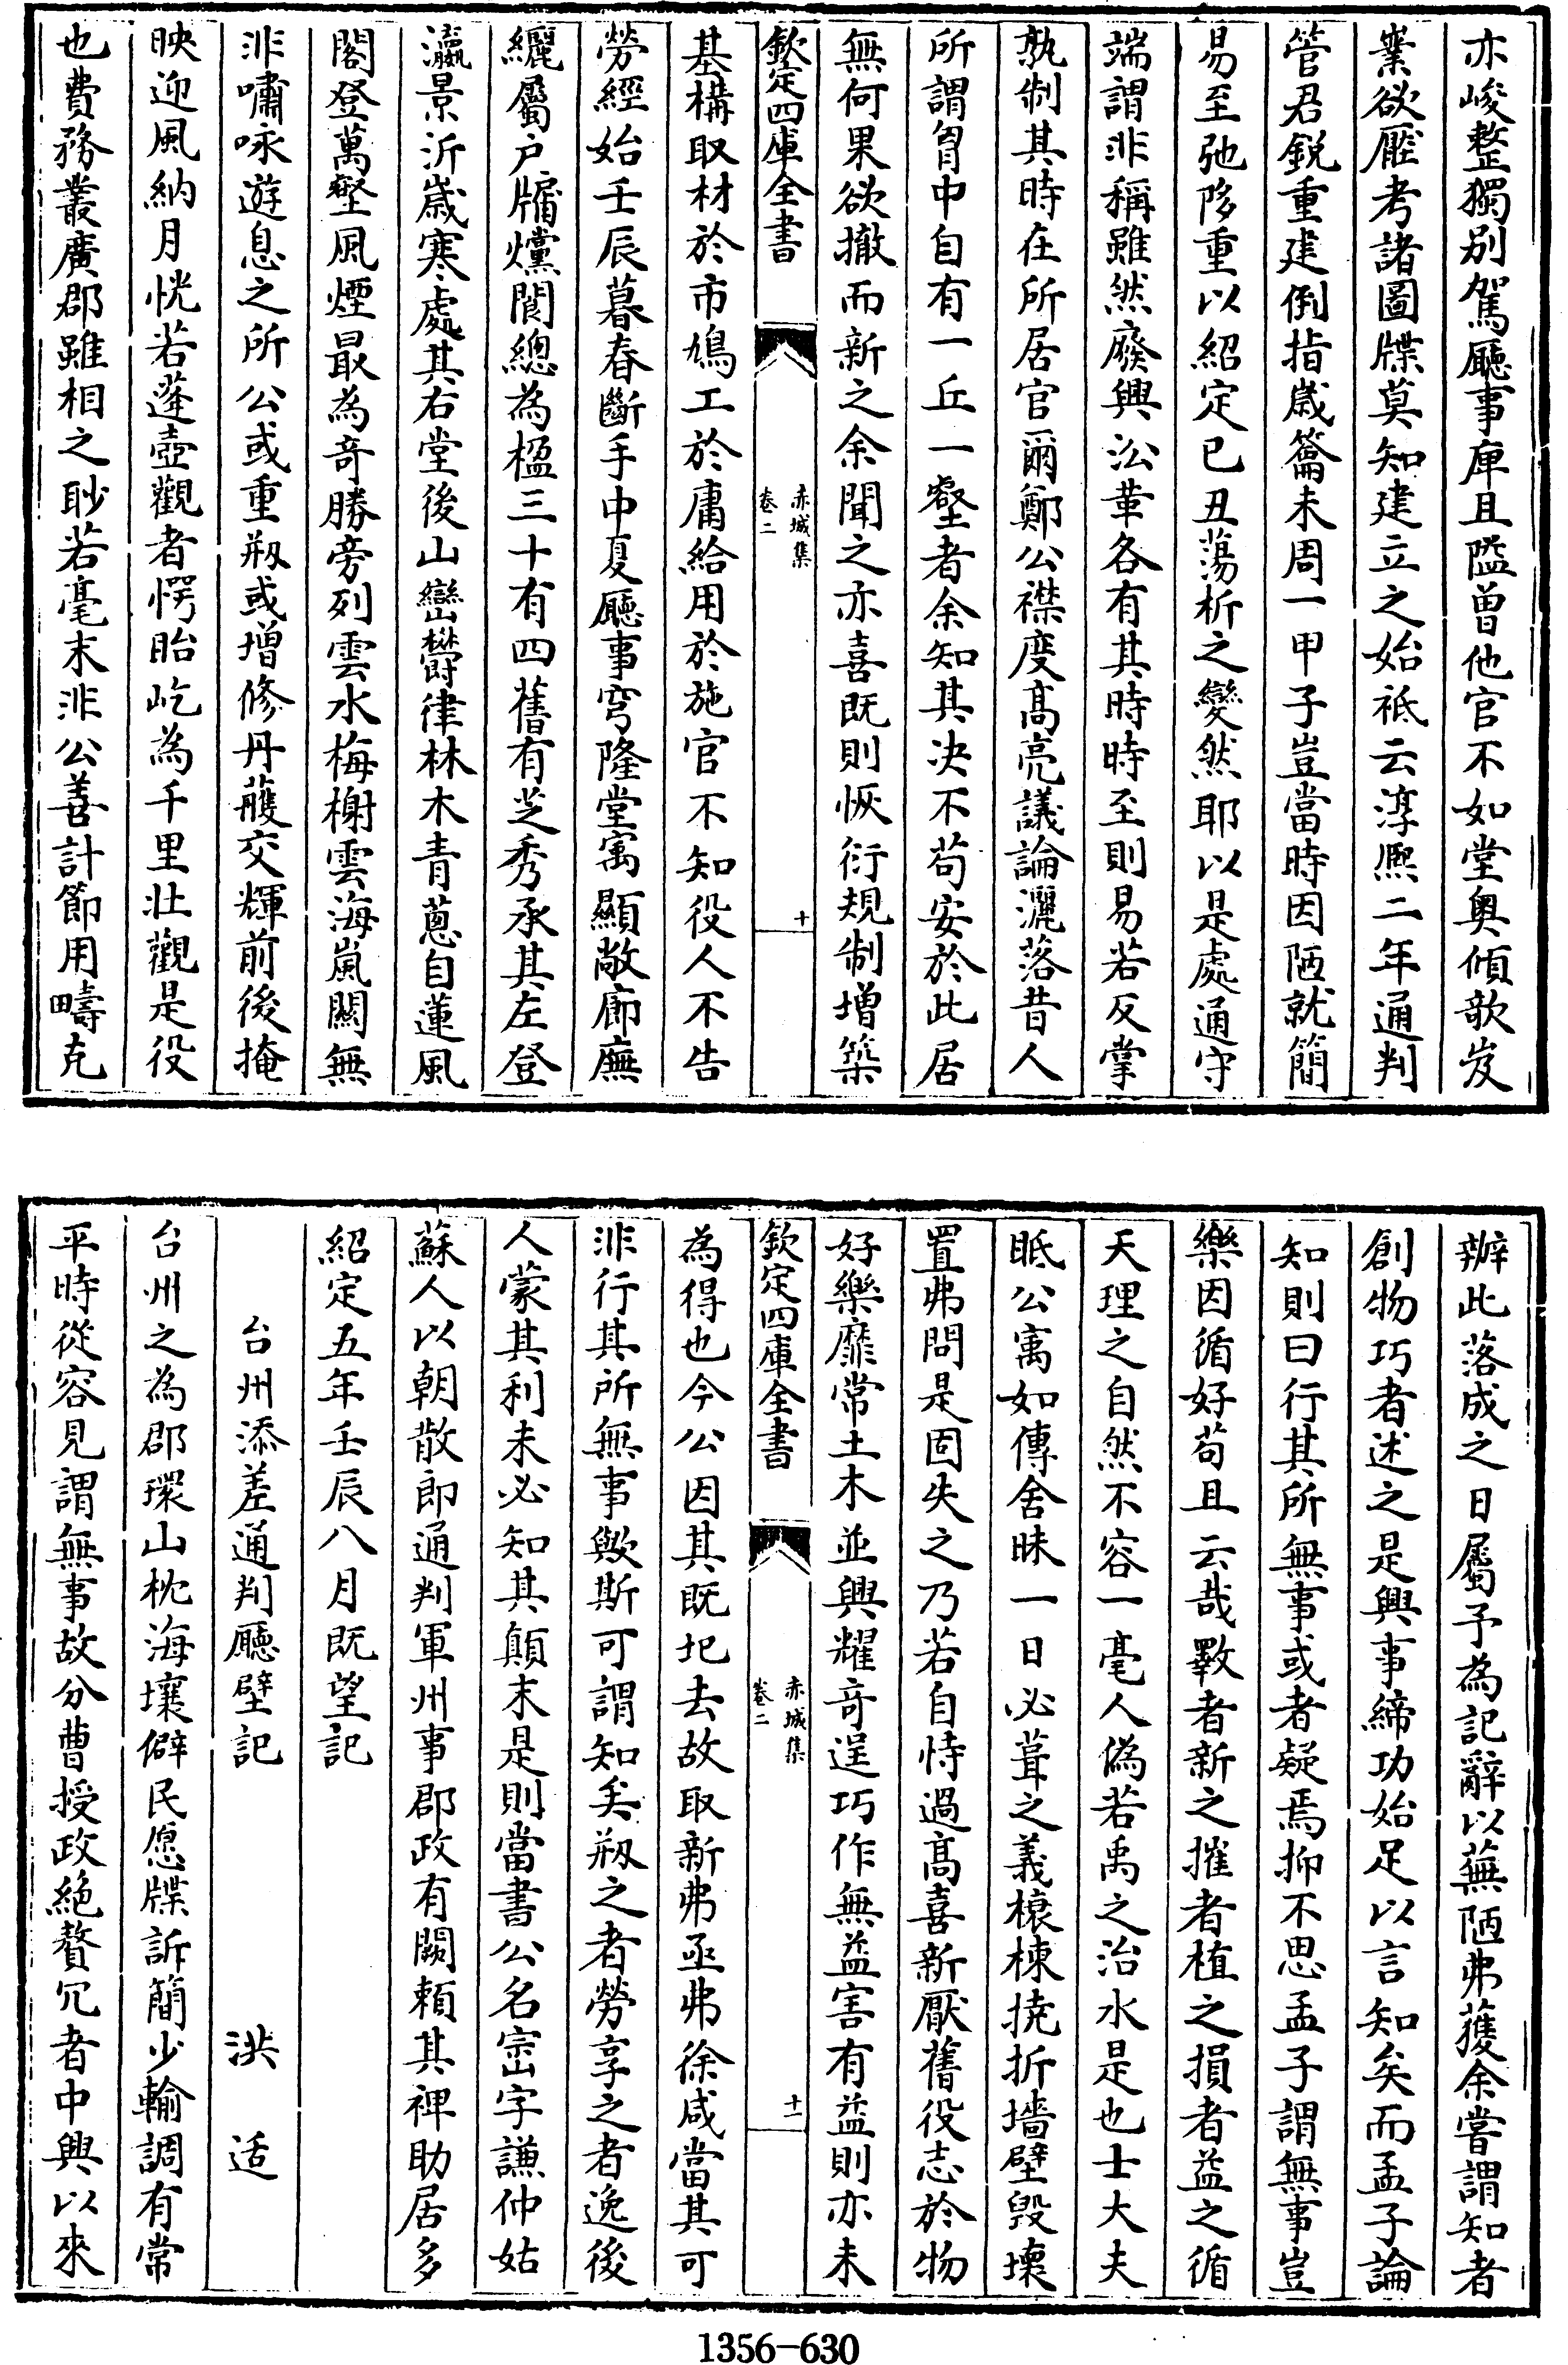 亦峻整獨别駕廳事庳且隘曽他官不如堂奥傾欹岌
業欲壓考諸圖牒莫知建立之始祗云淳熙二年通判
管君鋭重建倒指歳籥未周一甲子豈當時因陋就簡
易至弛陊重以紹定已丑蕩析之變然耶以是處通守
端謂非稱雖然廢興㳂革各有其時時至則易若反掌
孰制其時在所居官爾鄭公襟度髙亮議論灑落昔人
所謂胷中自有一丘一壑者余知其决不苟安於此居
無何果欲撤而新之余聞之亦喜既則恢衍規制增築
欽定四庫全書
赤城集
卷二
十
基構取材於市鳩工於庸給用於施官不知役人不告
勞經始壬辰暮春斷手中夏廳事穹隆堂寓顯敞廊廡
纚屬戸牖爣閬總為楹三十有四舊有芝秀承其左登
瀛景沂歳寒處其右堂後山巒欝律林木青蔥自蓮風
閣登萬壑風煙最為竒勝旁列雲水梅榭雲海嵐闗無
非嘯咏遊息之所公或重剏或增修丹雘交輝前後掩
映迎風納月恍若蓬壺觀者愕眙屹為千里壯觀是役
也費務叢廣郡雖相之眇若毫末非公善計節用疇克
辦此落成之日屬予為記辭以蕪陋弗獲余嘗謂知者
創物巧者述之是興事締功始足以言知矣而孟子論
知則曰行其所無事或者疑焉抑不思孟子謂無事豈
樂因循好苟且云哉斁者新之摧者植之損者益之循
天理之自然不容一毫人偽若禹之治水是也士大夫
眡公寓如傳舍昧一日必葺之義榱棟撓折墻壁毁壞
置弗問是固失之乃若自恃過髙喜新厭舊役志於物
好樂靡常土木並興耀竒逞巧作無益害有益則亦未
欽定四庫全書
赤城集
卷二
十一
為得也今公因其既圮去故取新弗亟弗徐咸當其可
非行其所無事歟斯可謂知矣剏之者勞享之者逸後
人蒙其利未必知其顛末是則當書公名崈字謙仲姑
蘇人以朝散郎通判軍州事郡政有闕頼其裨助居多
紹定五年壬辰八月既望記
台州添差通判廳壁記 洪适
台州之為郡環山枕海壤僻民愿牒訴簡少輸調有常
平時從容見謂無事故分曹授政絶贅冗者中興以來
1356-630